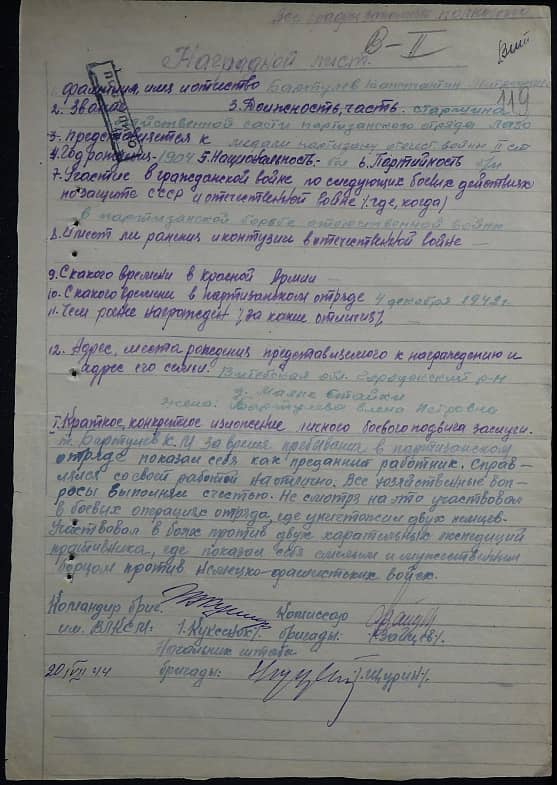 В-II
119
Наградной лист.
1. Фамилия, имя и отчество Бартулев Константин
2. Звание 3. Должность, часть. старшина
хозяйственной части партизанского отряда Лазо
3. Представляется к медали партизану отечест войны II ст
4. Год рождения - 1904 5. Национальность - 6. Партийность
7. Участие в гражданской войне по следующих боевых действиях
по защите СССР и отечественной войне /. где, когда/
в партизанской борьбе отечественной войны
8. Имеет ли ранения и контузии в отечественной войне —
9. С какого времени в красной Армии —
10. С какого времени в партизанском отряде 4 декабря 1942 г.
11. Чем ранее награжден /за какие отличия/. —
12. Адрес, места рождения представляемого к награждению и
адрес его семьи. Витебская обл. р-н
д. Малые Стайки
жена: Бартулева Елена Петровна
I. Краткое, конкретное изложение личного боевого подвига заслуги.
т. Бартулев К.М за время пребывания в партизанском
отряде показал себя как преданный работник. Справ-
лялся со своей работой на отлично. Все хозяйственные воп-
росы выполнял с честью. Не смотря на это участвовал
в боевых операциях отряда, где уничтожил двух немцев.
Участвовал в боях против двух карательных экспедиций
противника, где показал себя смелым и мужественным
борцом против немецко-фашистских войск.
Командир бриг. Комиссар
им. ВЛКСМ: бригады: /Зайцев/.
Начальник штаба
20/VII 44 бригады: /.Щурин/.